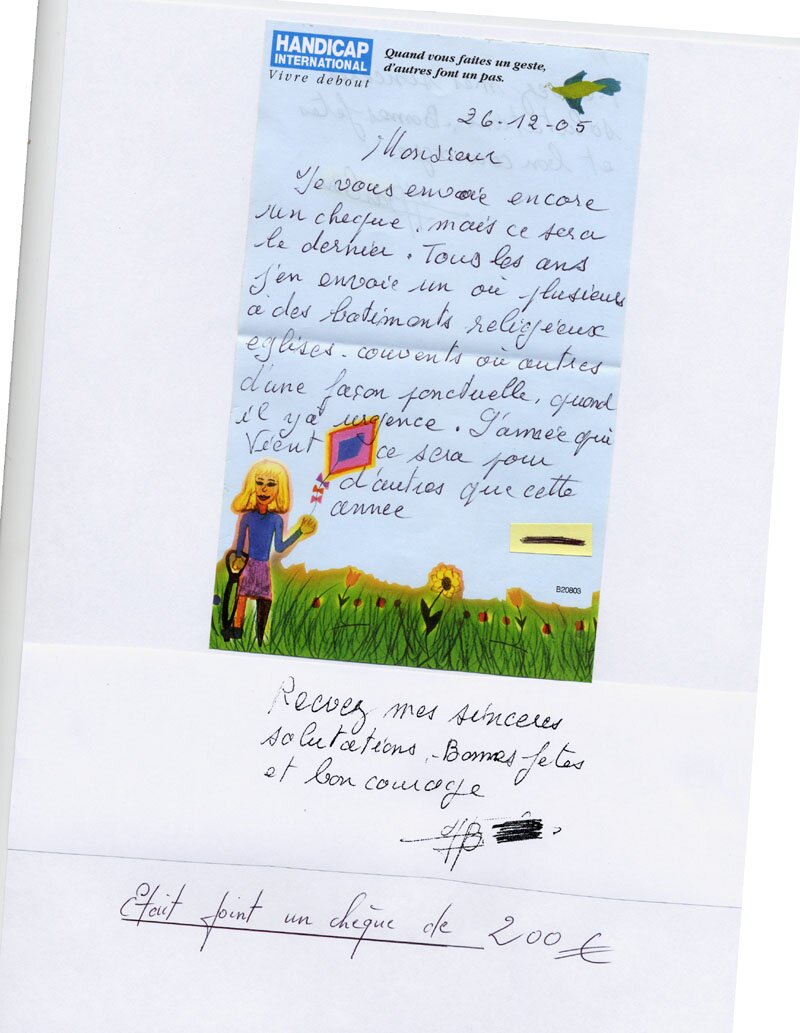 HANDICAP
INTERNATIONAL
Vivre debout
Quand vous faites un geste,
d'autres font un pas.
26-12-05
Monsieur
Je vous envoie encore
un cheque. mais ce sera
le dernier. Tous les ans
j'en envoie un où plusieurs
à des batiments religieux
eglises. couvents où autres
d'une façon ponctuelle, quand
il y a urgence. L'année qui
Vient ce sera pour
d'autres que cette
année
B20803
Recvez mes sinceres
salutations. - Bonnes fetes
et bon courage
Etait joint un chèque de 200 €